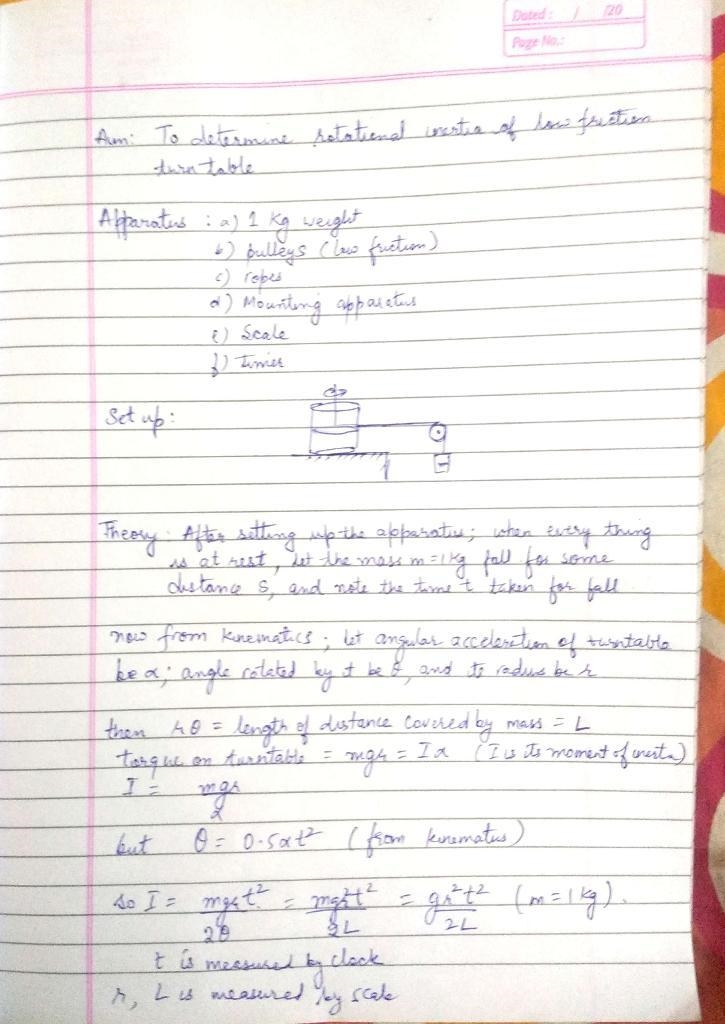 Dated: / /20
Page No.:
Aim: To determine rotational inertia of low friction
turn table
Apparatus : a) 1 Kg weight
b) pulleys (low friction)
c) ropes
d) Mounting apparatus
e) Scale
f) timer
Set up:
Theory: After setting up the apparatus; when every thing
is at rest, let the mass m=1kg fall for some
distance S, and note the time t taken for fall
now from kinematics; let angular acceleration of turntable
be α; angle rotated by it be θ, and its radius be r
then rθ = length of distance covered by mass = L
torque on turntable = mgr = Iα (I is its moment of inertia)
I = mgr/α
but θ = 0.5αt² (from kinematics)
so I = mgrt²/2θ = mgr²t²/2L = gr²t²/2L (m=1kg).
t is measured by clock
r, L is measured by scale